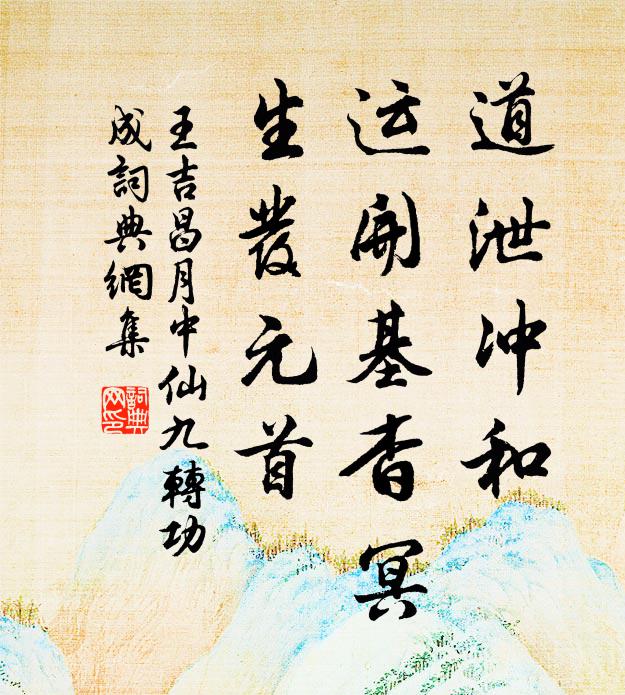 道泄冲和
运開基杳冥
生發元首
王吉昌月中仙九轉功
成詞典網集
詞典网印